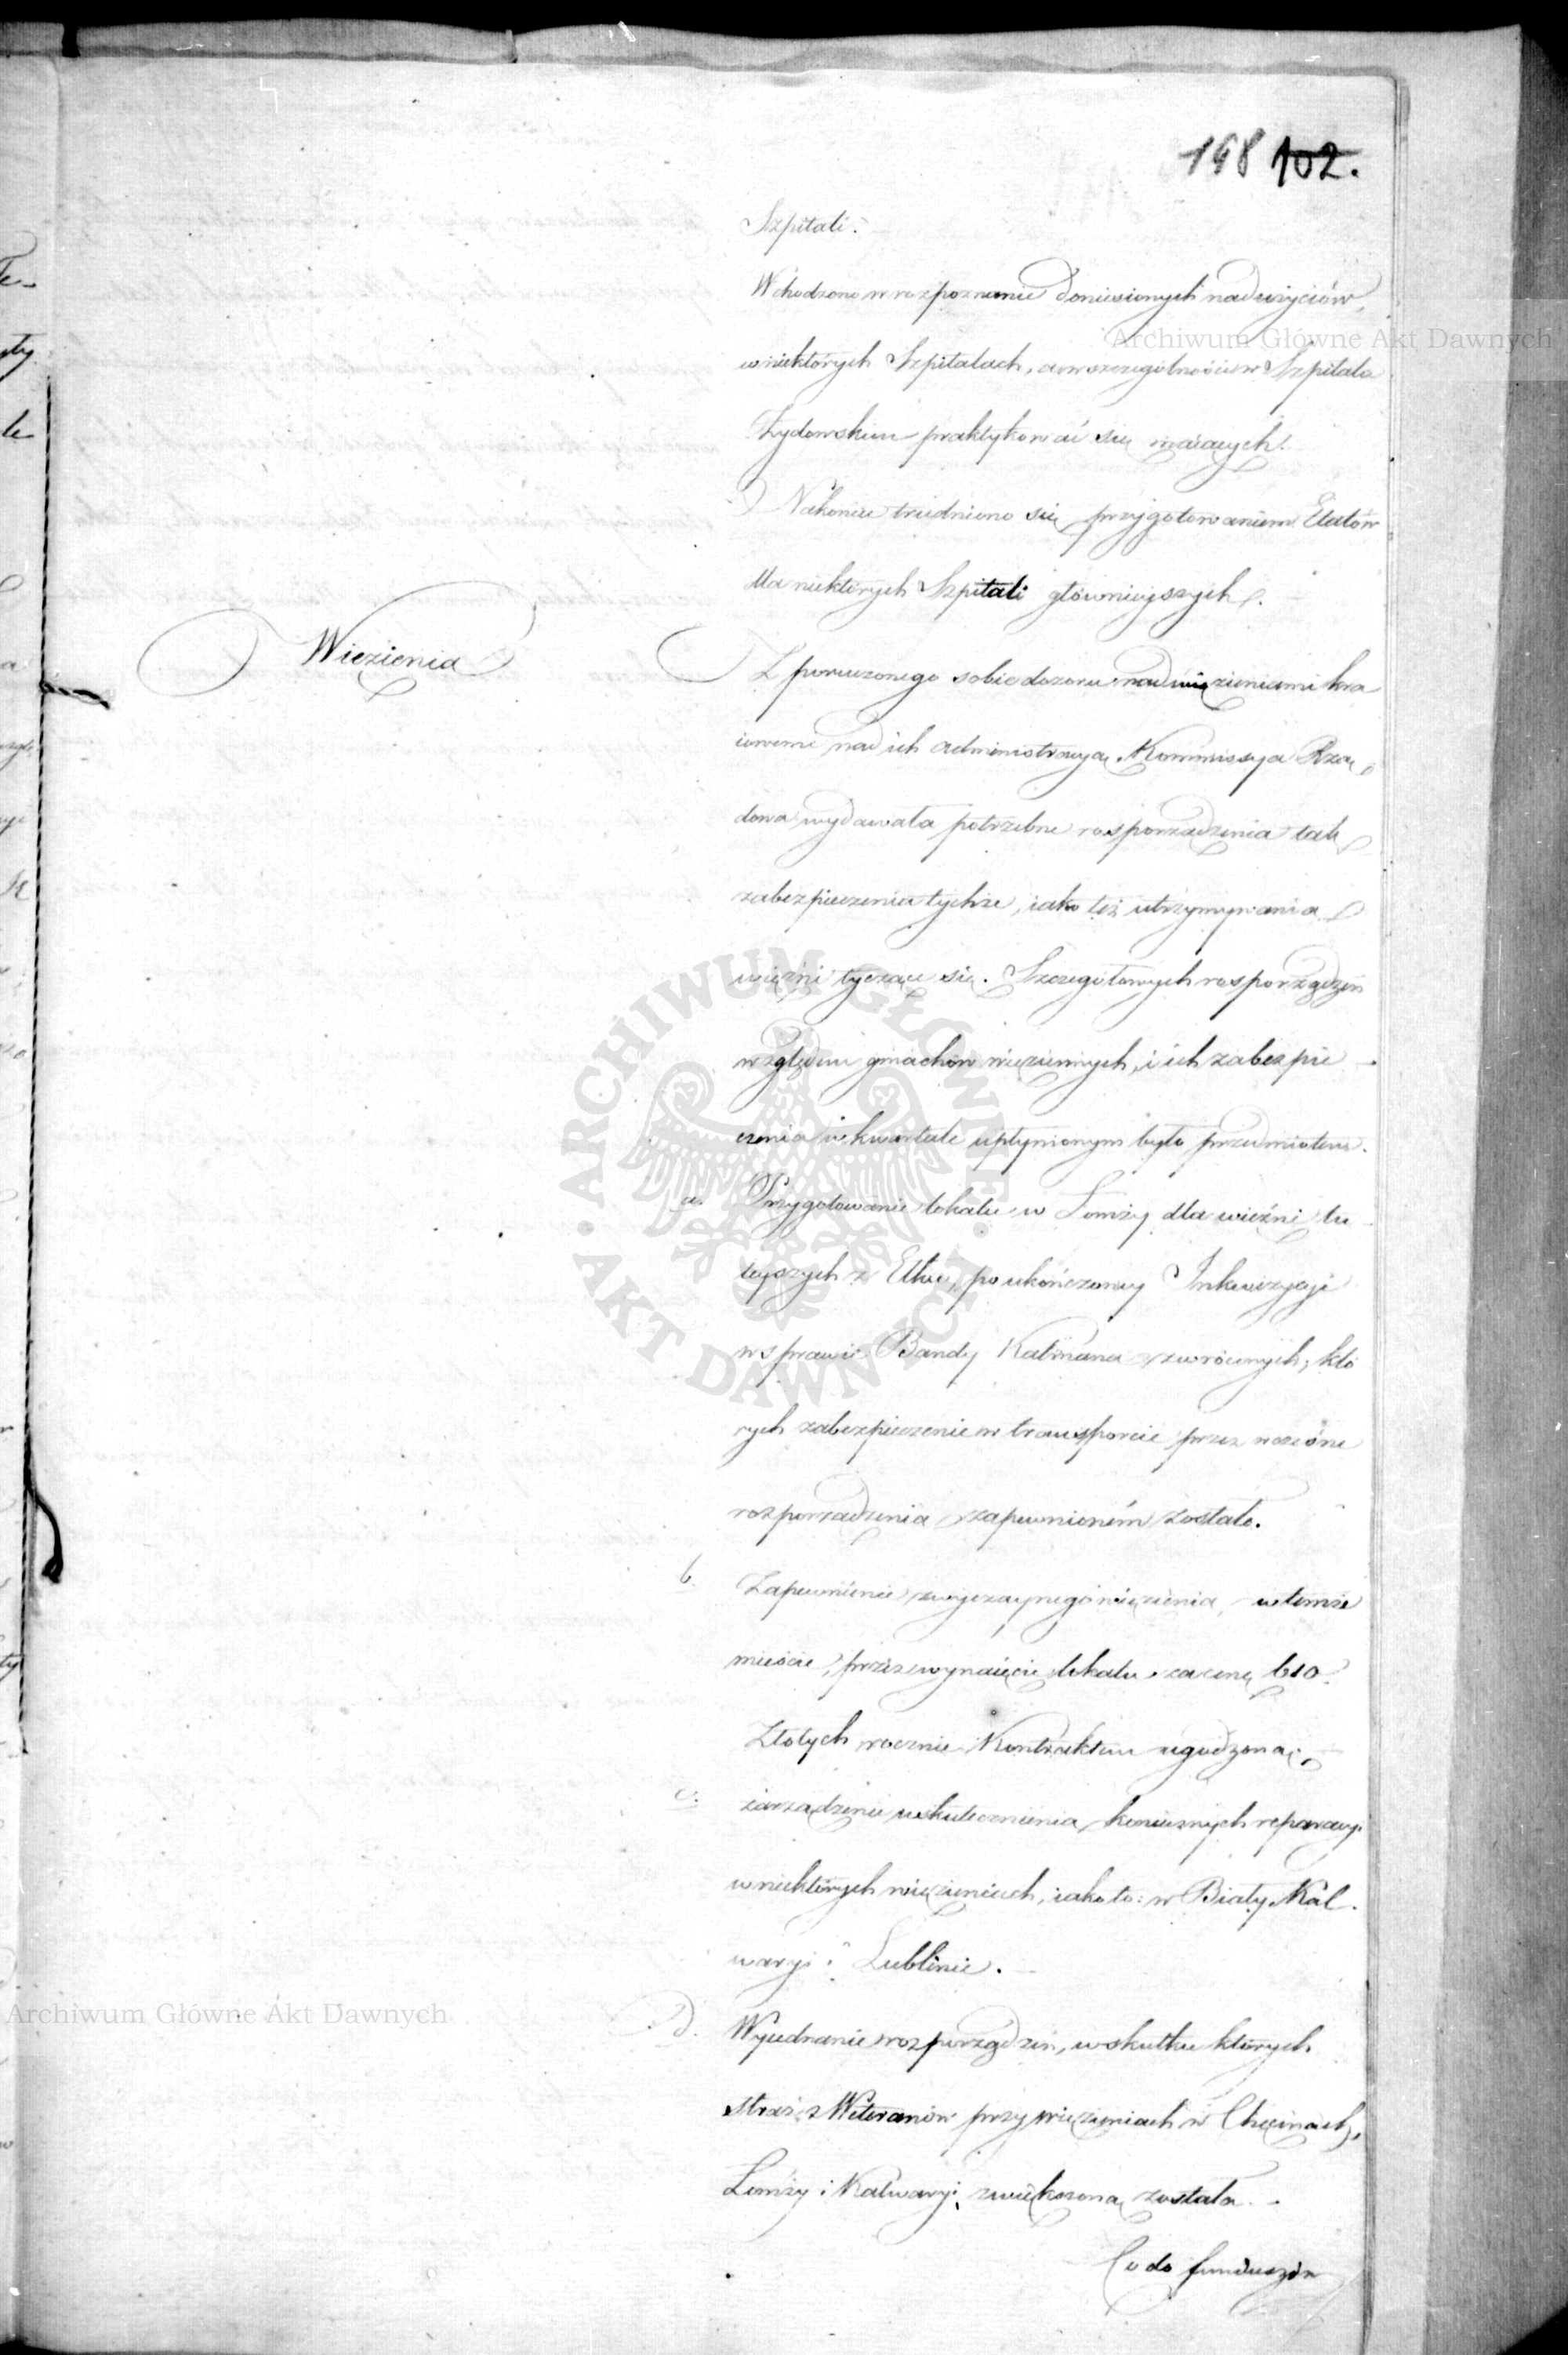 198 102.
Szpitali.
Wchodzono w rozpoznanie doniesionych nadużyciów,
w niektórych Szpitalach, a w szczególności w Szpitalu
Żydowskim praktykować się maiących.
Nakoniec trudniono się przygotowaniem Etatów
dla niektórych Szpitali głównieyszych.
Więzienia
Z poruczonego sobie dozoru nad więzieniami kra
iowemi nad ich administracyą, Kommissya Rzą
dowa wydawała potrzebne rosporządzenia tak
zabezpieczenia tychże, iako też utrzymywania
więźni tyczące się. Szczegółowych rosporządzeń
względem gmachów więziennych, i ich zabezpie
czenia w kwartale upłynionym było przedmiotem.
a. Przygotowanie lokalu w Łomży dla więźni tu
teyszych z Ełku, po ukończoney Inkwizycyi
w sprawie Bandy Kalmana zwróconych, któ
rych zabezpieczenie w transporcie przez wczesne
rozporządzenia zapewnioném zostało.
b. Zapewnienie zwyczaynego więzienia w temże
mieście, przez wynaięcie lokalu za cenę 610
Złotych rocznie Kontraktem ugodzoną;
c. zarządzenie uskutecznienia koniecznych reparacyi
w niektórych więzieniach, iako to: w Biały, Kal
waryi i Lublinie.
d. Wyiednanie rozporządzeń, w skutku których
straż z Weteranów przy więzieniach w Chęcinach,
Łomży i Kalwaryi, zwiększoną została.
Co do funduszów
Archiwum Główne Akt Dawnych
Archiwum Główne Akt Dawnych
ARCHIWUM GŁÓWNE AKT DAWNYCH